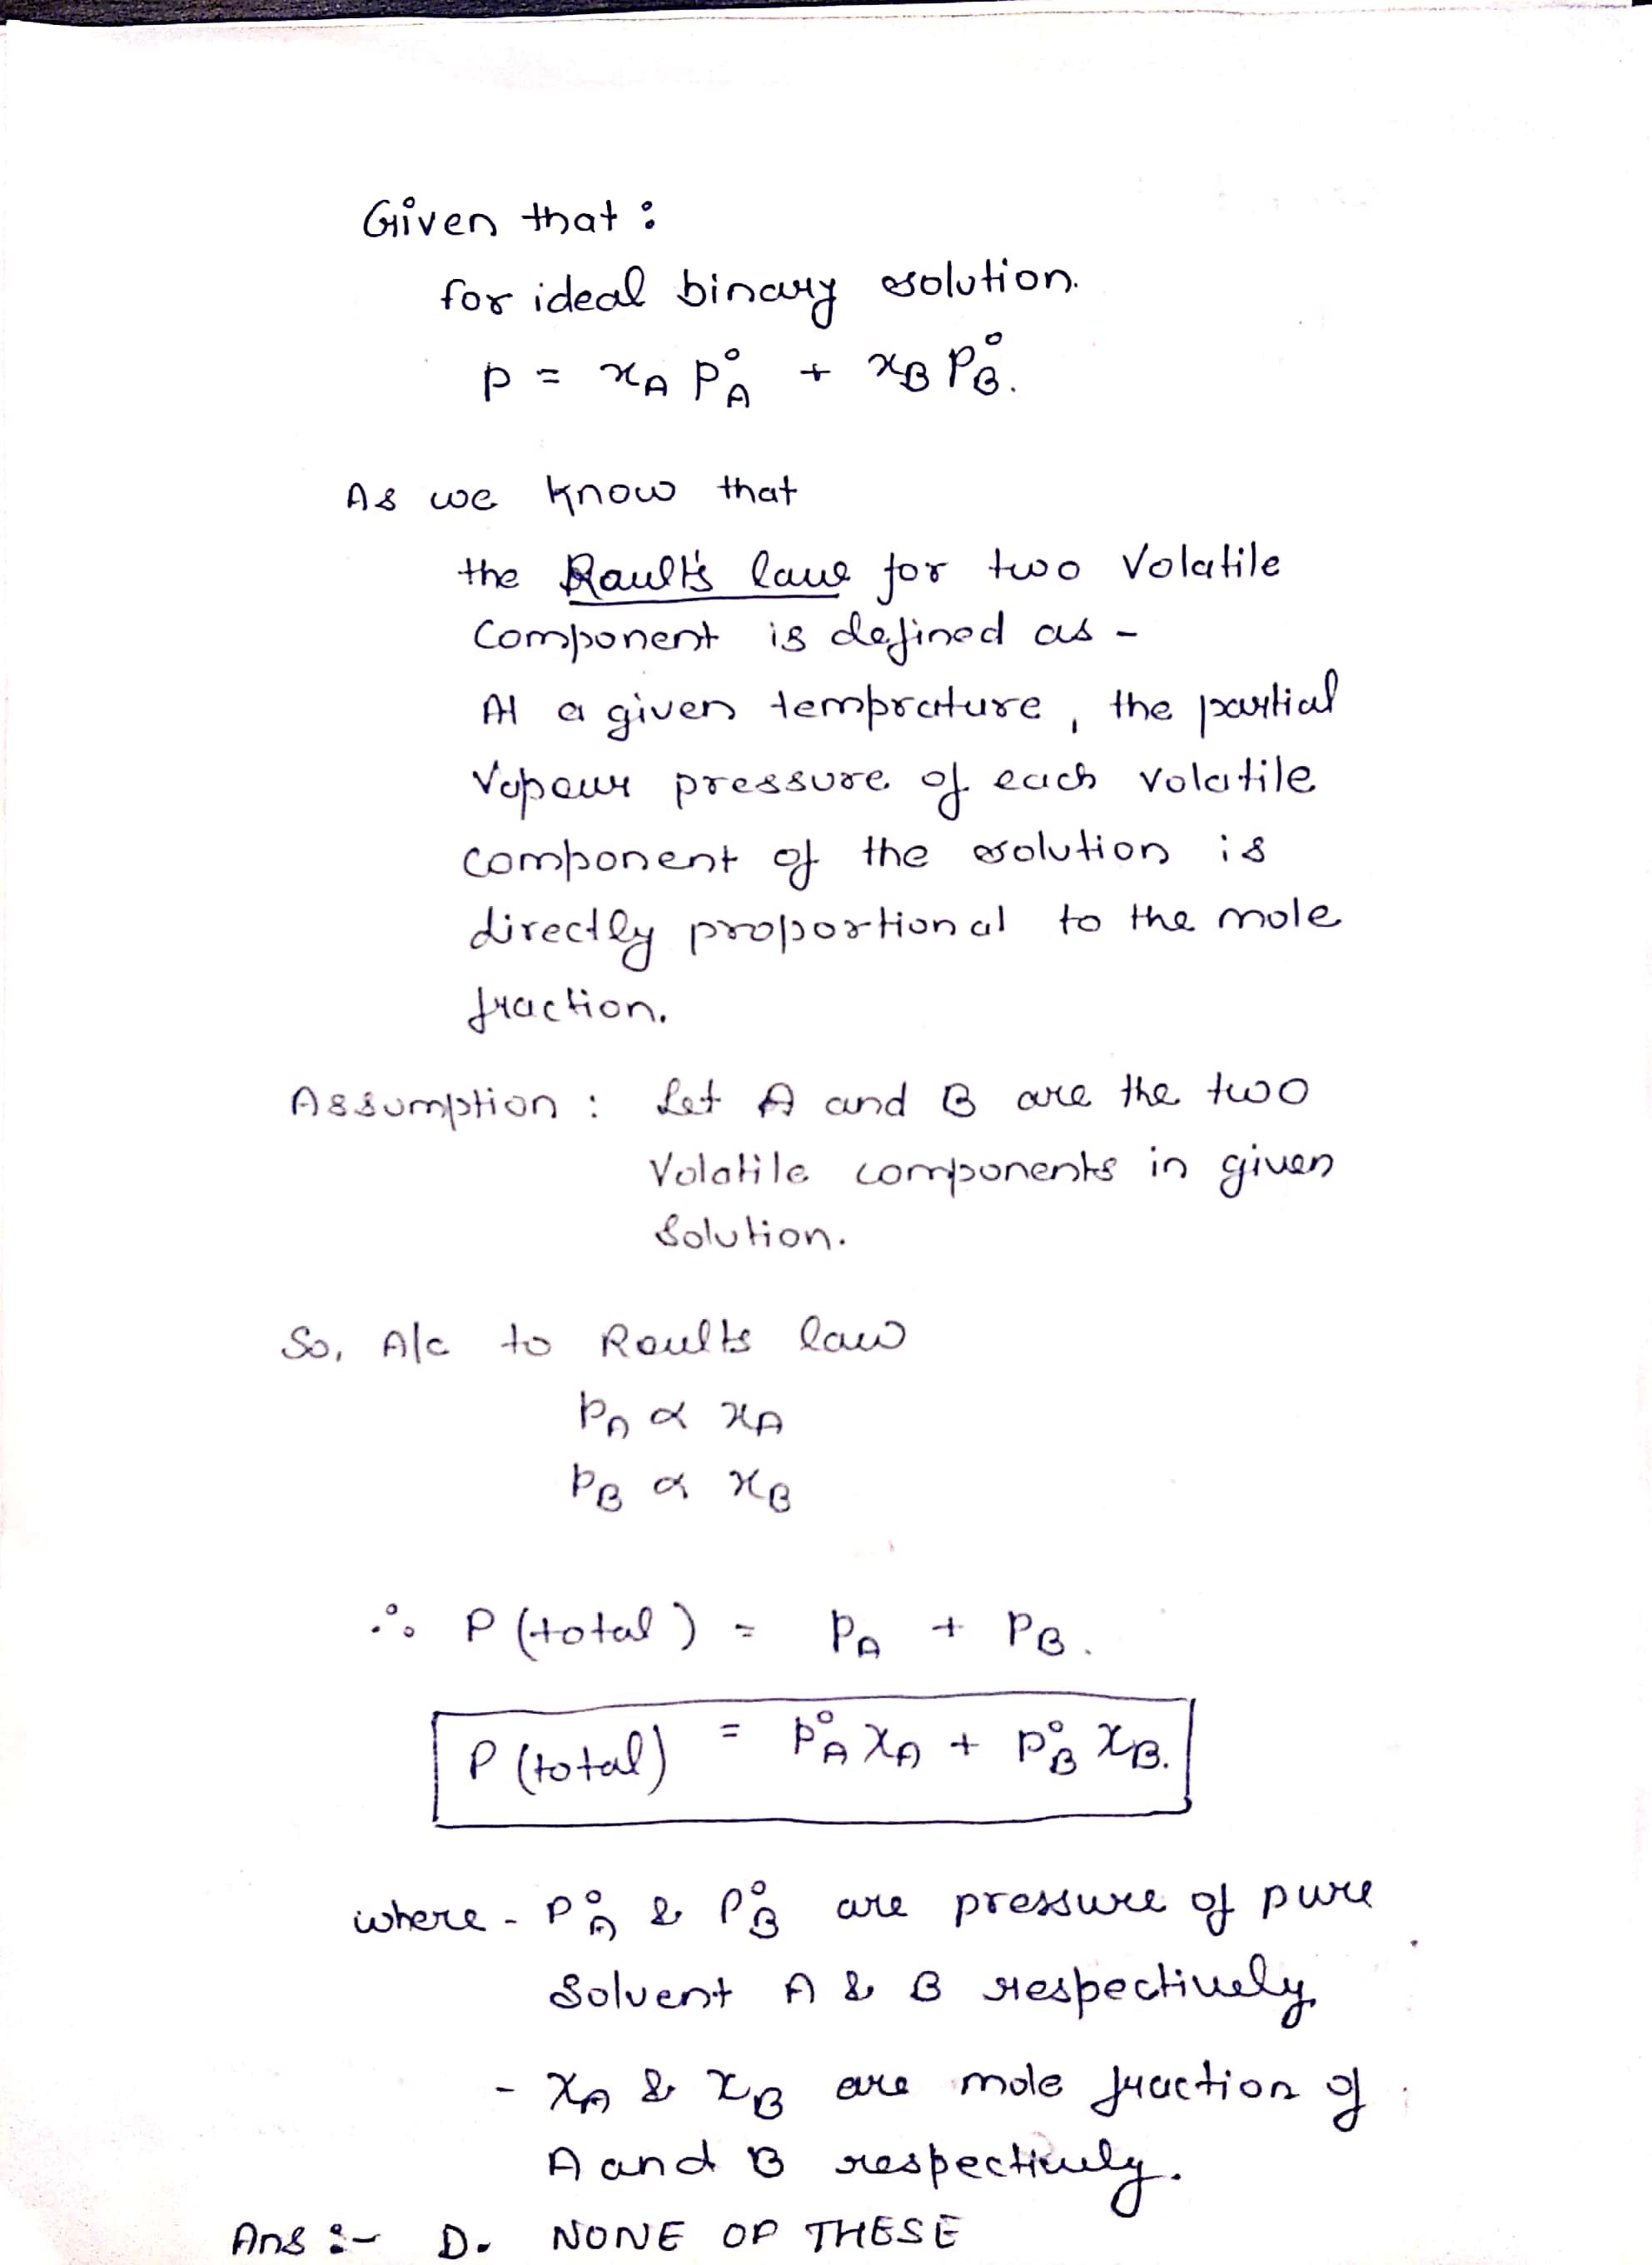 Given that :
for ideal binary solution.
p = xA p°A + xB P°B.
As we know that
the Rault's lawe for two Volatile
Component is defined as -
At a given temprature, the partial
Vapour pressure of each volatile
component of the solution is
directly proportional to the mole
fraction.
Assumption : Let A and B are the two
Volatile components in given
Solution.
So, A/c to Roults law
pA ∝ xA
pB ∝ xB
∴ P (total) = PA + PB.
P (total) = p°A xA + p°B xB.
where - P°A & P°B are pressure of pure
Solvent A & B respectively
- xA & xB are mole fraction of
A and B respectively.
Ans :- D. NONE OF THESE